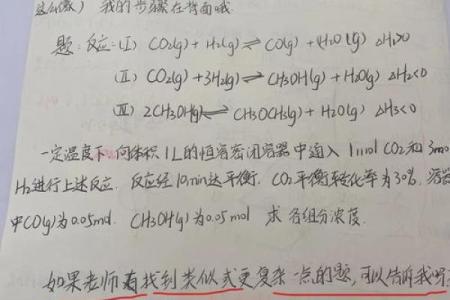 这么做) 我的步骤在背面哦.
题: 反应:(I) CO₂(g) + H₂(g) ⇌ CO(g) + H₂O(g) ΔH₁>0
(II) CO₂(g) + 3H₂(g) ⇌ CH₃OH(g) + H₂O(g) ΔH₂<0
(III) 2CH₃OH(g) ⇌ CH₃OCH₃(g) + H₂O(g) ΔH₃<0
一定温度下,向体积1L的恒容密闭容器中通入1mol CO₂和3mo
H₂进行上述反应. 反应经10min达平衡. CO₂平衡转化率为30%, 容器
中CO(g)为0.05mol. CH₃OH(g)为0.05mol 求各组分浓度.
如果老师有找到类似或更复杂一点的题, 可以告诉我吗